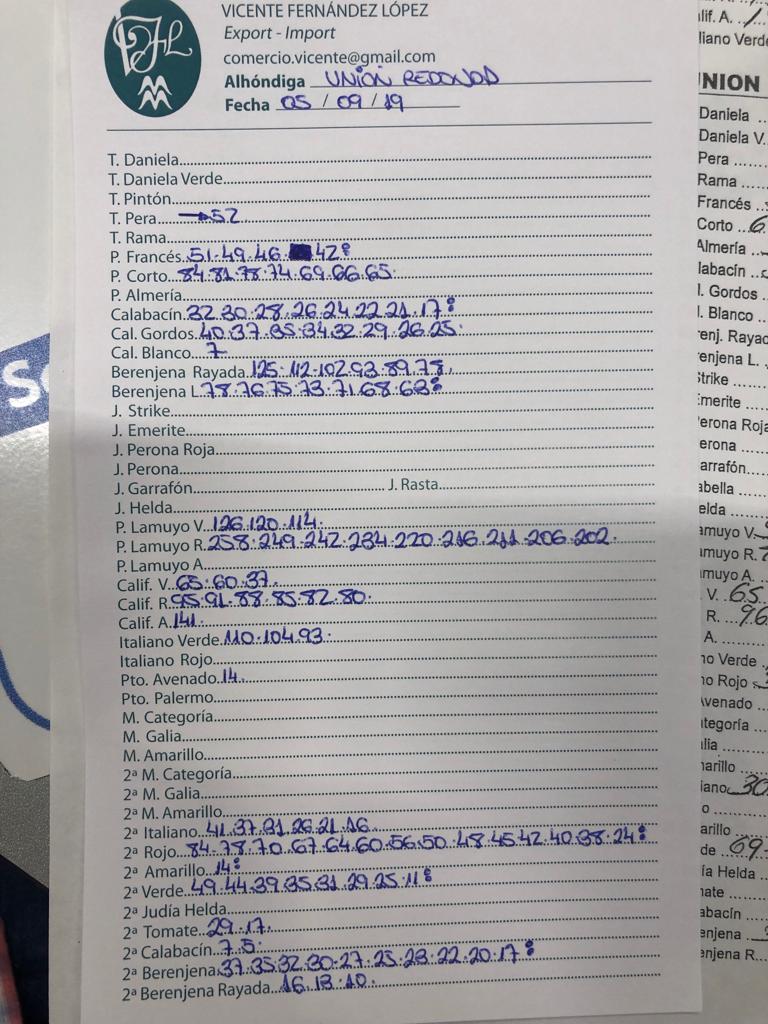 VICENTE FERNÁNDEZ LÓPEZ
Export - Import
comercio.vicente@gmail.com
Alhóndiga UNION REDONDO
Fecha 05 / 09 / 19
T. Daniela
T. Daniela Verde
T. Pintón
T. Pera → 52
T. Rama
P. Francés 51.49.46. 42:
P. Corto 84.81.78.74.69.66.65.
P. Almería
Calabacín 32.30.28.26.24.22.21.17:
Cal. Gordos 40.37.35.34.32.29.26.25.
Cal. Blanco 7
Berenjena Rayada 125.112.102.93.89.78.
Berenjena L. 78.76.75.73.71.68.63:
J. Strike
J. Emerite
J. Perona Roja
J. Perona
J. Garrafón J. Rasta
J. Helda
P. Lamuyo V. 126.120.114.
P. Lamuyo R. 258.249.242.234.220.216.211.206.202.
P. Lamuyo A.
Calif. V. 65.60.37.
Calif. R. 95.91.88.85.82.80.
Calif. A. 141.
Italiano Verde 110.104.93.
Italiano Rojo
Pto. Avenado 14.
Pto. Palermo
M. Categoría
M. Galia
M. Amarillo
2ª M. Categoría
2ª M. Galia
2ª M. Amarillo
2ª Italiano 41.37.31.26.21.16.
2ª Rojo 84.78.70.67.64.60.56.50.48.45.42.40.38.24:
2ª Amarillo 14:
2ª Verde 49.44.39.35.31.29.25.11:
2ª Judía Helda
2ª Tomate 29.17.
2ª Calabacín 7.5.
2ª Berenjena 37.35.32.30.27.25.23.22.20.17:
2ª Berenjena Rayada 16.13.10.
lif. A.
liano Verde
UNION
Daniela
Daniela V.
Pera
Rama
Francés
Corto 6
Almería
labacín
l. Gordos
l. Blanco
enj. Rayad
enjena L.
Strike
Emerite
Perona Roja
erona
arrafón
abella
elda
amuyo V.
amuyo R.
muyo A.
V. 65
R. 96
A.
no Verde
no Rojo
Avenado
ategoría
alia
narillo
iano 30
o
arillo
de 69
ía Helda
nate
abacín
enjena
enjena R.